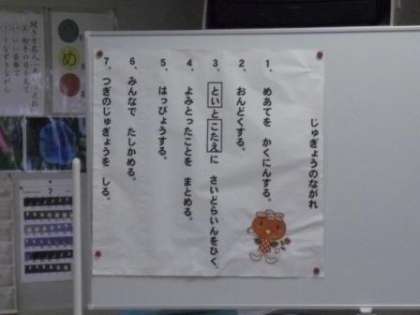 じゅぎょうのながれ
1. めあてを かくにんする。
2. おんどくする。
3. といとこたえに さいどらいんをひく。
4. よみとったことを まとめる。
5. はっぴょうする。
6. みんなで たしかめる。
7. つぎのじゅぎょうを しる。
め